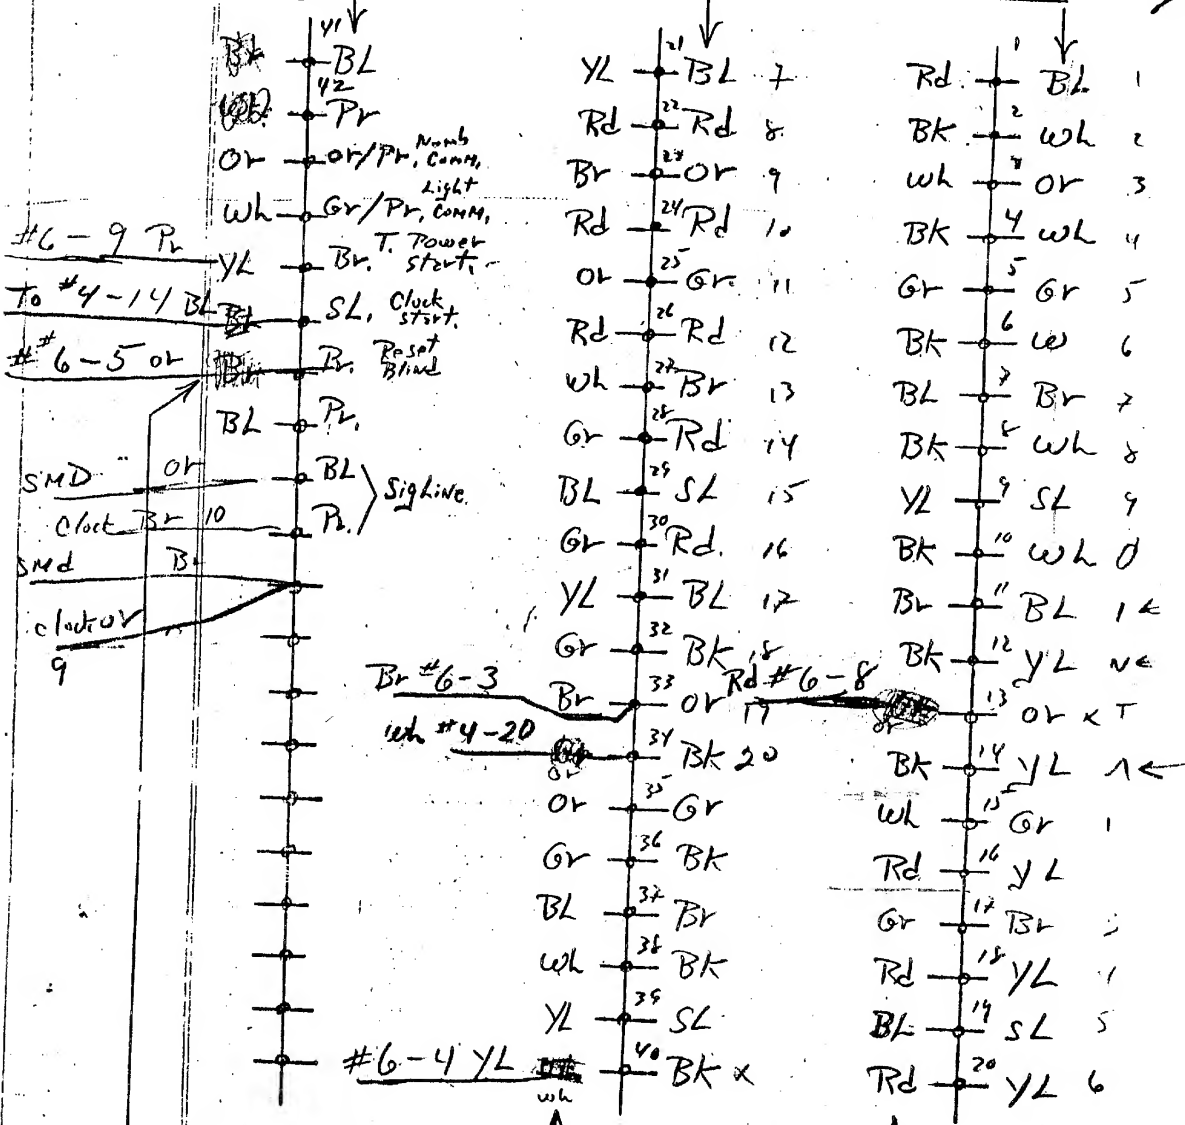 41
BL
42
Pr
Or or/Pr, Numb Comm,
Wh Gr/Pr, Light Comm,
#6-9 Pr YL Br. T. Power start.
To #4-14 BL SL, Clock start.
#6-5 or Br. Reset Blind
BL Pr.
SMD or BL
Clock Br 10 Pr. } Sig Line
SMd Br
clock or
9
YL 21 BL 7
Rd 22 Rd 8
Br 23 Or 9
Rd 24 Rd 10
Or 25 Gr. 11
Rd 26 Rd 12
Wh 27 Br 13
Gr 28 Rd 14
BL 29 SL 15
Gr 30 Rd. 16
YL 31 BL 17
Gr 32 BK 18
Br #6-3 Br 33 Or 19
Wh #4-20 or 34 BK 20
Or 35 Gr
Gr 36 BK
BL 37 Br
Wh 38 BK
YL 39 SL
#6-4 YL wh 40 BK x
Rd. 1 BL 1
BK 2 Wh 2
Wh 3 Or 3
BK 4 Wh 4
Gr 5 Gr 5
BK 6 W 6
BL 7 Br 7
BK 8 Wh 8
YL 9 SL 9
BK 10 Wh 0
Br 11 BL 1 ←
BK 12 YL N ←
Rd #6-8 or 13 Or x T
BK 14 YL ←
Wh 15 Gr 1
Rd 16 YL
Gr 17 Br
Rd 18 YL
BL 19 SL 5
Rd 20 YL 6